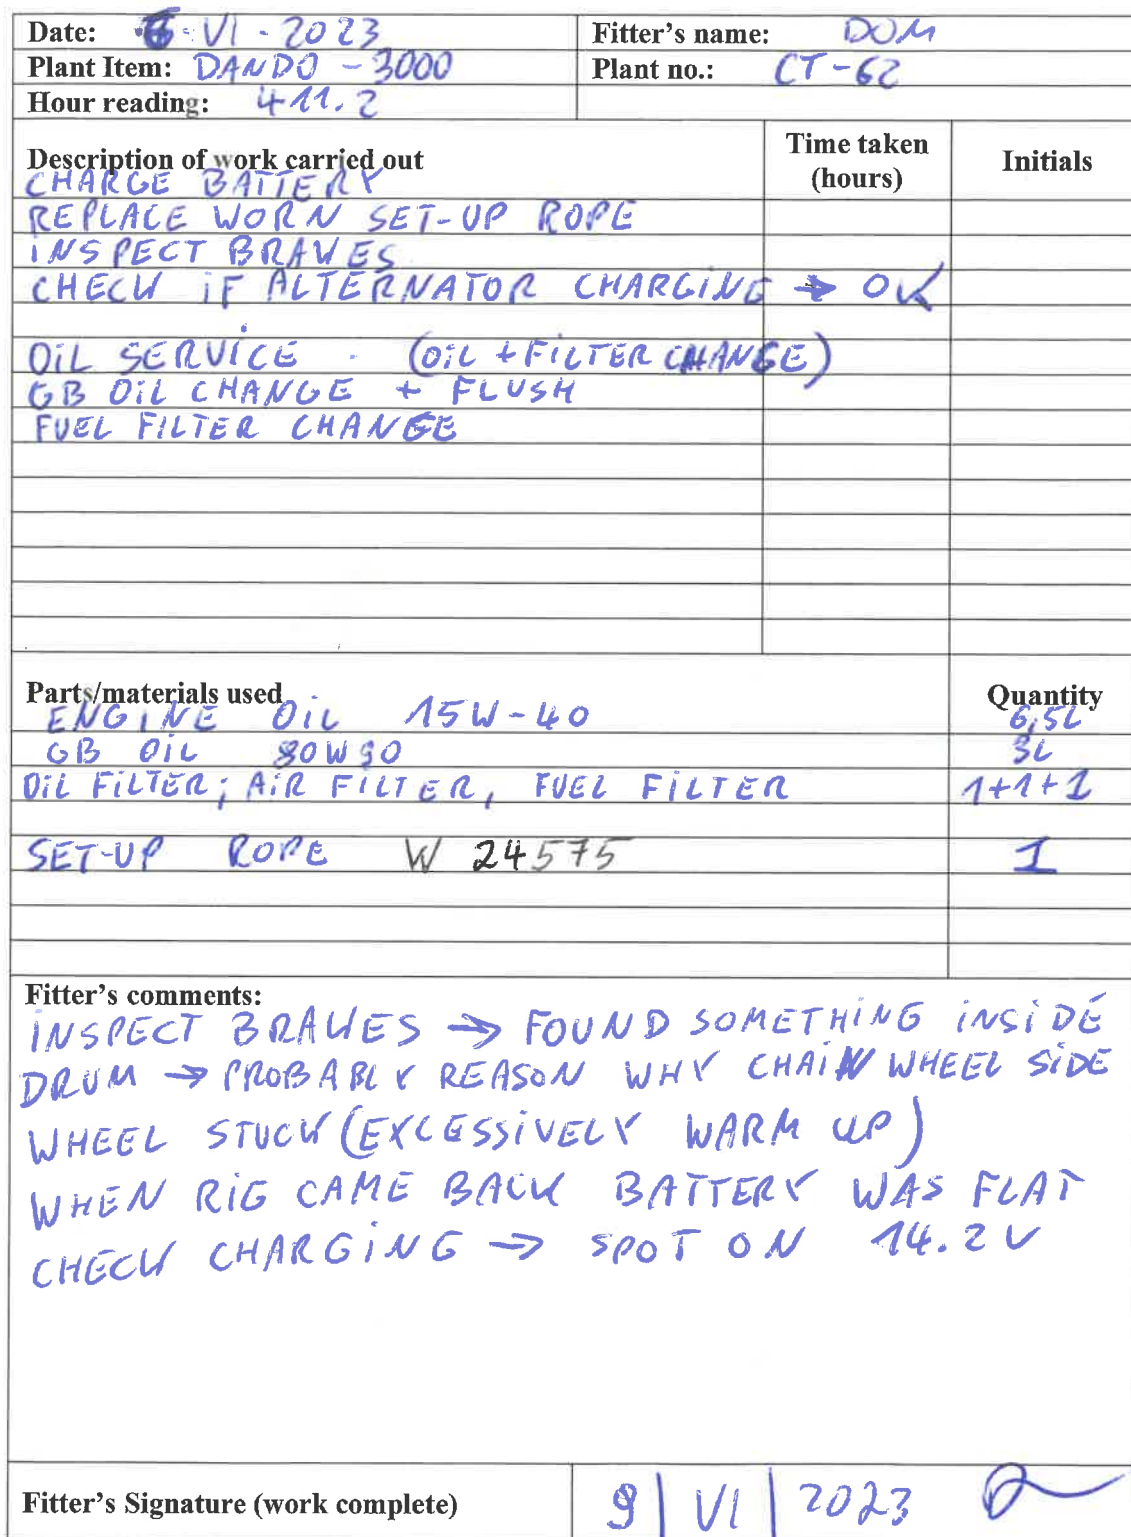 Date: 6-VI-2023 Fitter's name: DOM
Plant Item: DANDO-3000 Plant no.: CT-62
Hour reading: 411.2
Description of work carried out Time taken (hours) Initials
CHARGE BATTERY
REPLACE WORN SET-UP ROPE
INSPECT BRAKES
CHECK iF ALTERNATOR CHARGiNG → OK
OiL SERViCE . (OiL + FiLTER CHANGE)
GB OiL CHANGE + FLUSH
FUEL FiLTER CHANGE
Parts/materials used Quantity
ENGINE OiL 15W-40 6,5L
GB OiL 80W90 3L
OiL FiLTER; AiR FiLTER, FUEL FiLTER 1+1+1
SET-UP ROPE W 24575 1
Fitter's comments:
iNSPECT BRAKES → FOUND SOMETHiNG iNSiDE
DRUM → PROBABLY REASON WHY CHAiN WHEEL SiDE
WHEEL STUCK (EXCESSiVELY WARM UP)
WHEN RiG CAME BACK BATTERY WAS FLAT
CHECK CHARGiNG → SPOT ON 14.2V
Fitter's Signature (work complete) 9 | VI | 2023